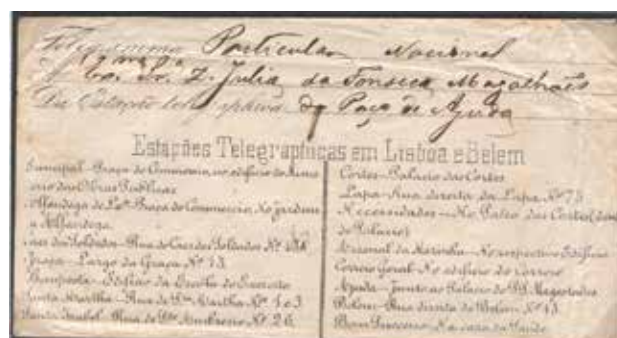 Telegramma Particular Nacional
Sr. D. Julia da Fonseca Magalhães
Da Estação telegraphica do Paço de Ajuda
Estações Telegraphicas em Lisboa e Belem
Principal-Praça do Commercio, no edificio do Minis
terio das Obras Publicas
Alfandega de Lxª-Praça do Commercio, No jardim
a Alfandega.
Caes dos Soldados-Rua do Caes dos Soldados Nº
Graça-Largo da Graça Nº 13
Bemposta-Edificio da Escola do Exercito
Santa Martha-Rua de Stª Martha Nº 103
Santa Isabel-Rua de Stº Ambrosio Nº 26
Cortes-Palacio das Cortes
Lapa-Rua direita da Lapa, Nº 75
Necessidades-No Pateo das Cortes (
do Palacio)
Arsenal da Marinha-No respectivo Edificio
Correio Geral-No edificio do correio
Ajuda-Junto ao Palacio de SS. Magestades
Belem-Rua direita de Belem Nº 13
Bom Successo-Na casa da Saude